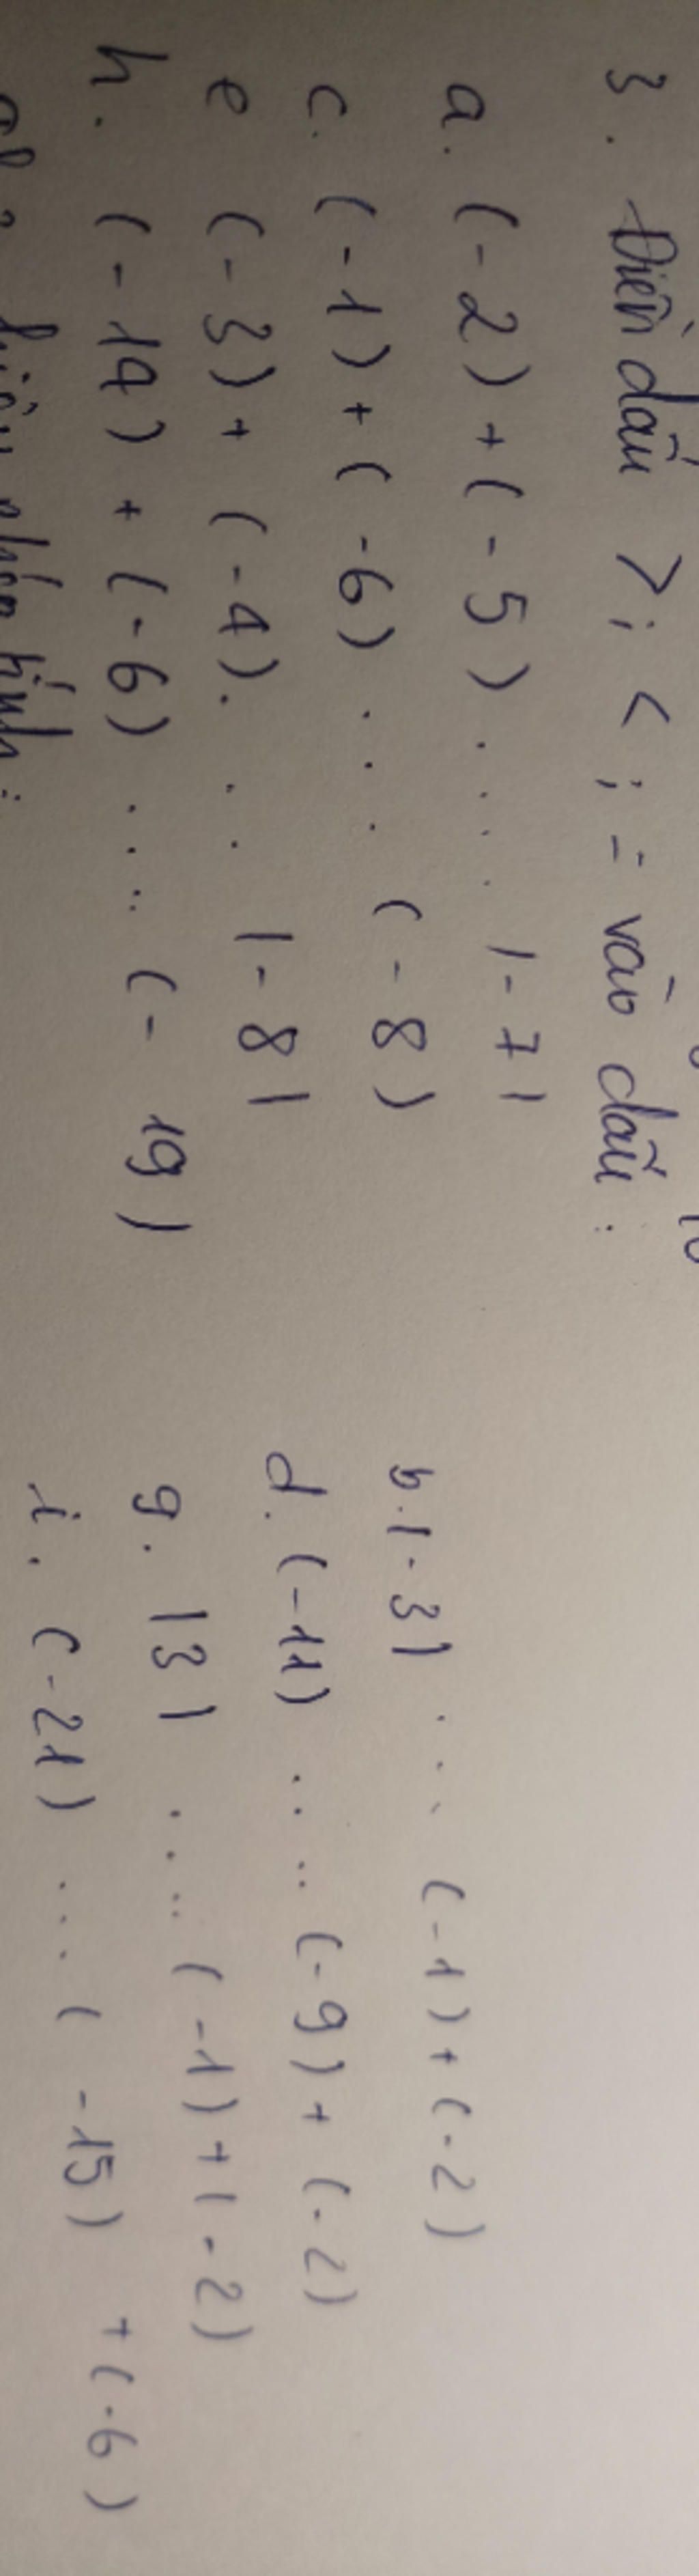 3. Điền dấu > ; < ; = vào dấu :
a. (-2) + (-5) .... |-7|
b. |-3| ... (-1) + (-2)
c. (-1) + (-6) ... (-8)
d. (-11) .... (-9) + (-2)
e (-3) + (-4) ... |-8|
g. |3| .... (-1) + (-2)
h. (-14) + (-6) .... (- 19)
i. (-21) ... (-15) + (-6)